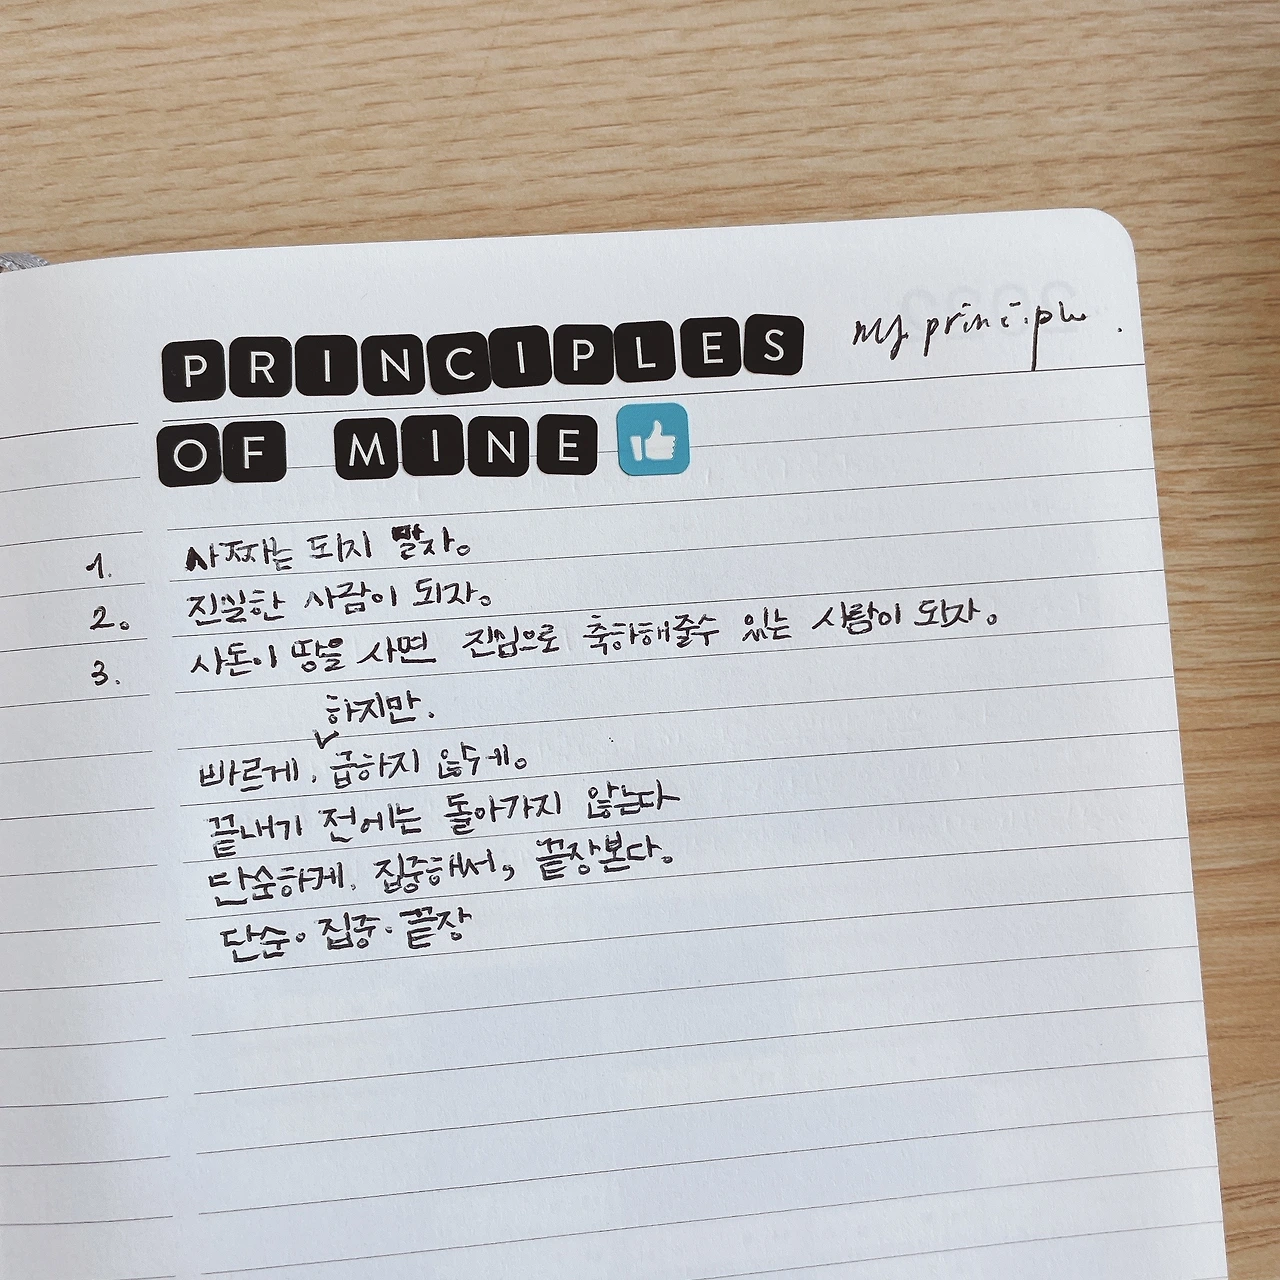 PRINCIPLES my principle.
OF MINE
1. 사짜는 되지 말자.
2. 진실한 사람이 되자.
3. 사돈이 땅을 사면 진심으로 축하해줄수 있는 사람이 되자.
하지만.
빠르게, 급하지 않게.
끝내기 전에는 돌아가지 않는다
단순하게, 집중해서, 끝장본다.
단순. 집중. 끝장